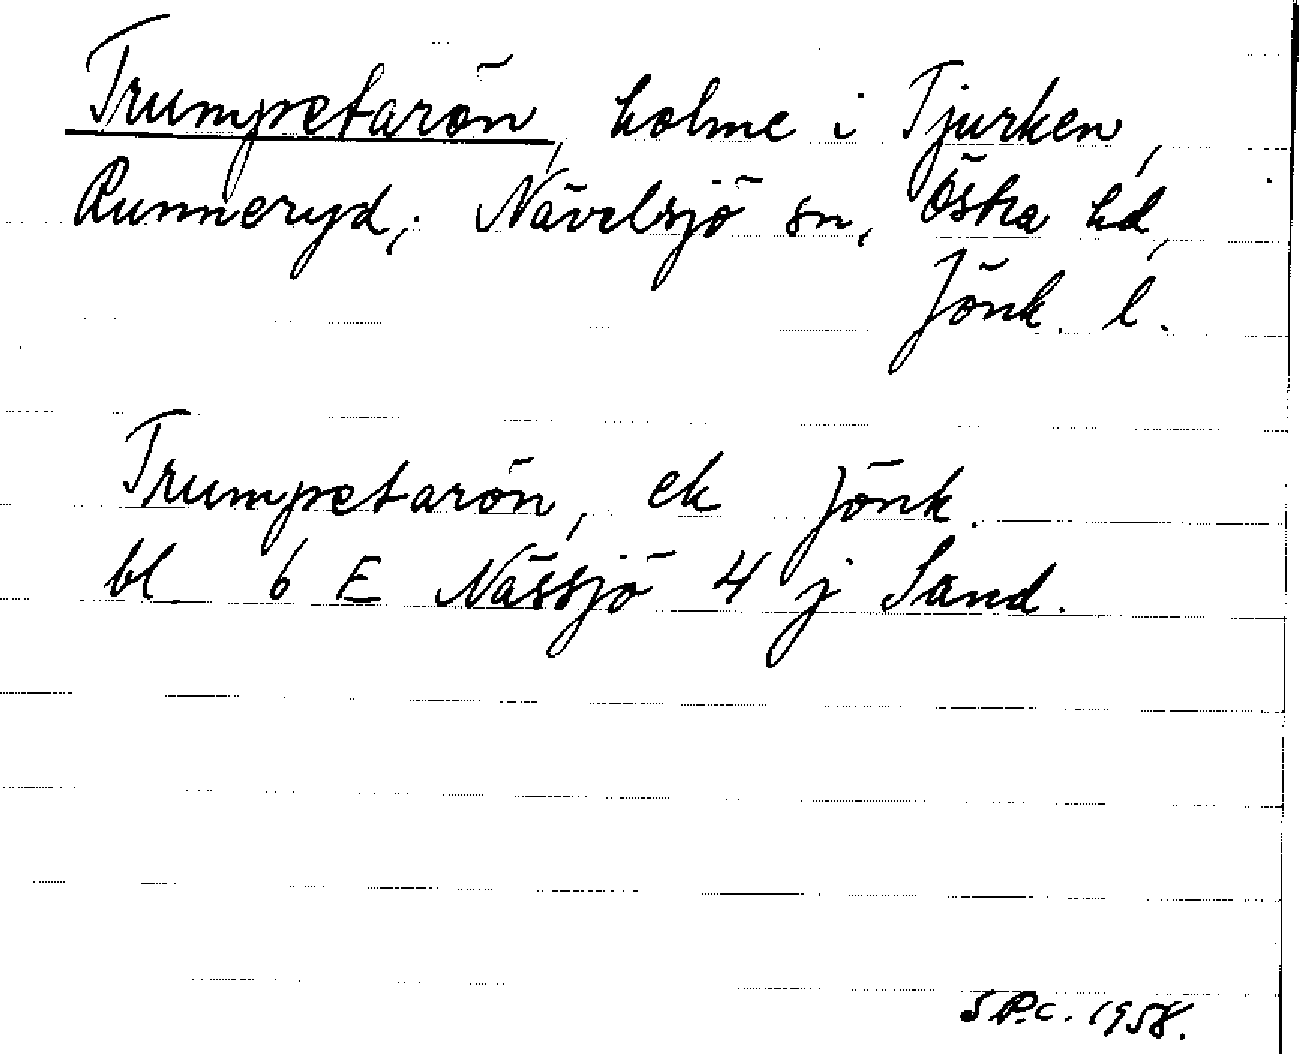 Trumpetarön, holme i Tjurken,
Runneryd; Nävelsjö sn, Östra hd,
Jönk. l.
Trumpetarön, ek Jönk.
bl 6 E Nässjö 4 j Sand.
S.P.C. 1958.